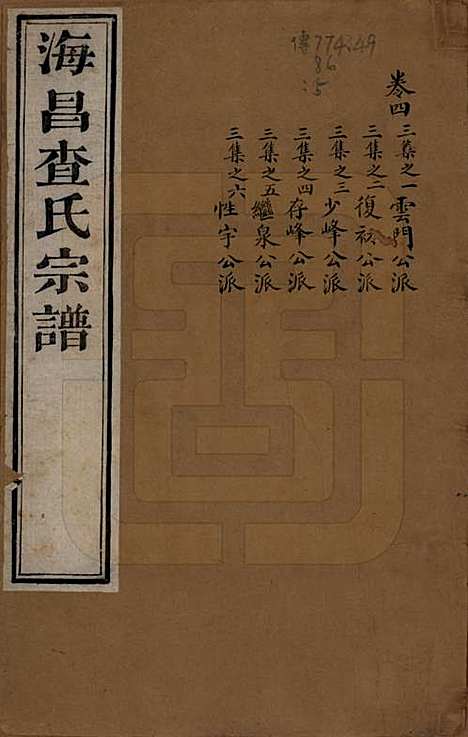 海昌查氏宗譜
傳774.49
86
:5
卷四
三集之一雲門公派
三集之二復初公派
三集之三少峰公派
三集之四存峰公派
三集之五繼泉公派
三集之六性宇公派